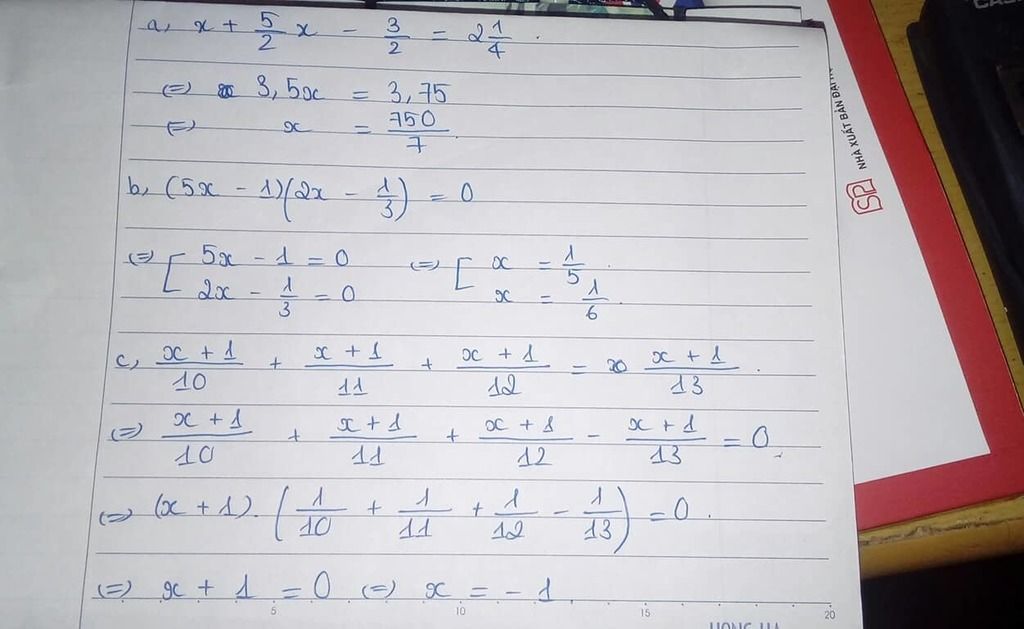 a, x + 5/2 x - 3/2 = 2 1/4 .
<=> 3,5x = 3,75
<=> x = 750/7
b, (5x - 1)(2x - 1/3) = 0
<=> [ 5x - 1 = 0 <=> [ x = 1/5 .
2x - 1/3 = 0 x = 1/6 .
c, x + 1/10 + x + 1/11 + x + 1/12 = x + 1/13 .
<=> x + 1/10 + x + 1/11 + x + 1/12 - x + 1/13 = 0 .
<=> (x + 1) . (1/10 + 1/11 + 1/12 - 1/13) = 0 .
<=> x + 1 = 0 <=> x = - 1
5 10 15 20
NHÀ XUẤT BẢN ĐẠI